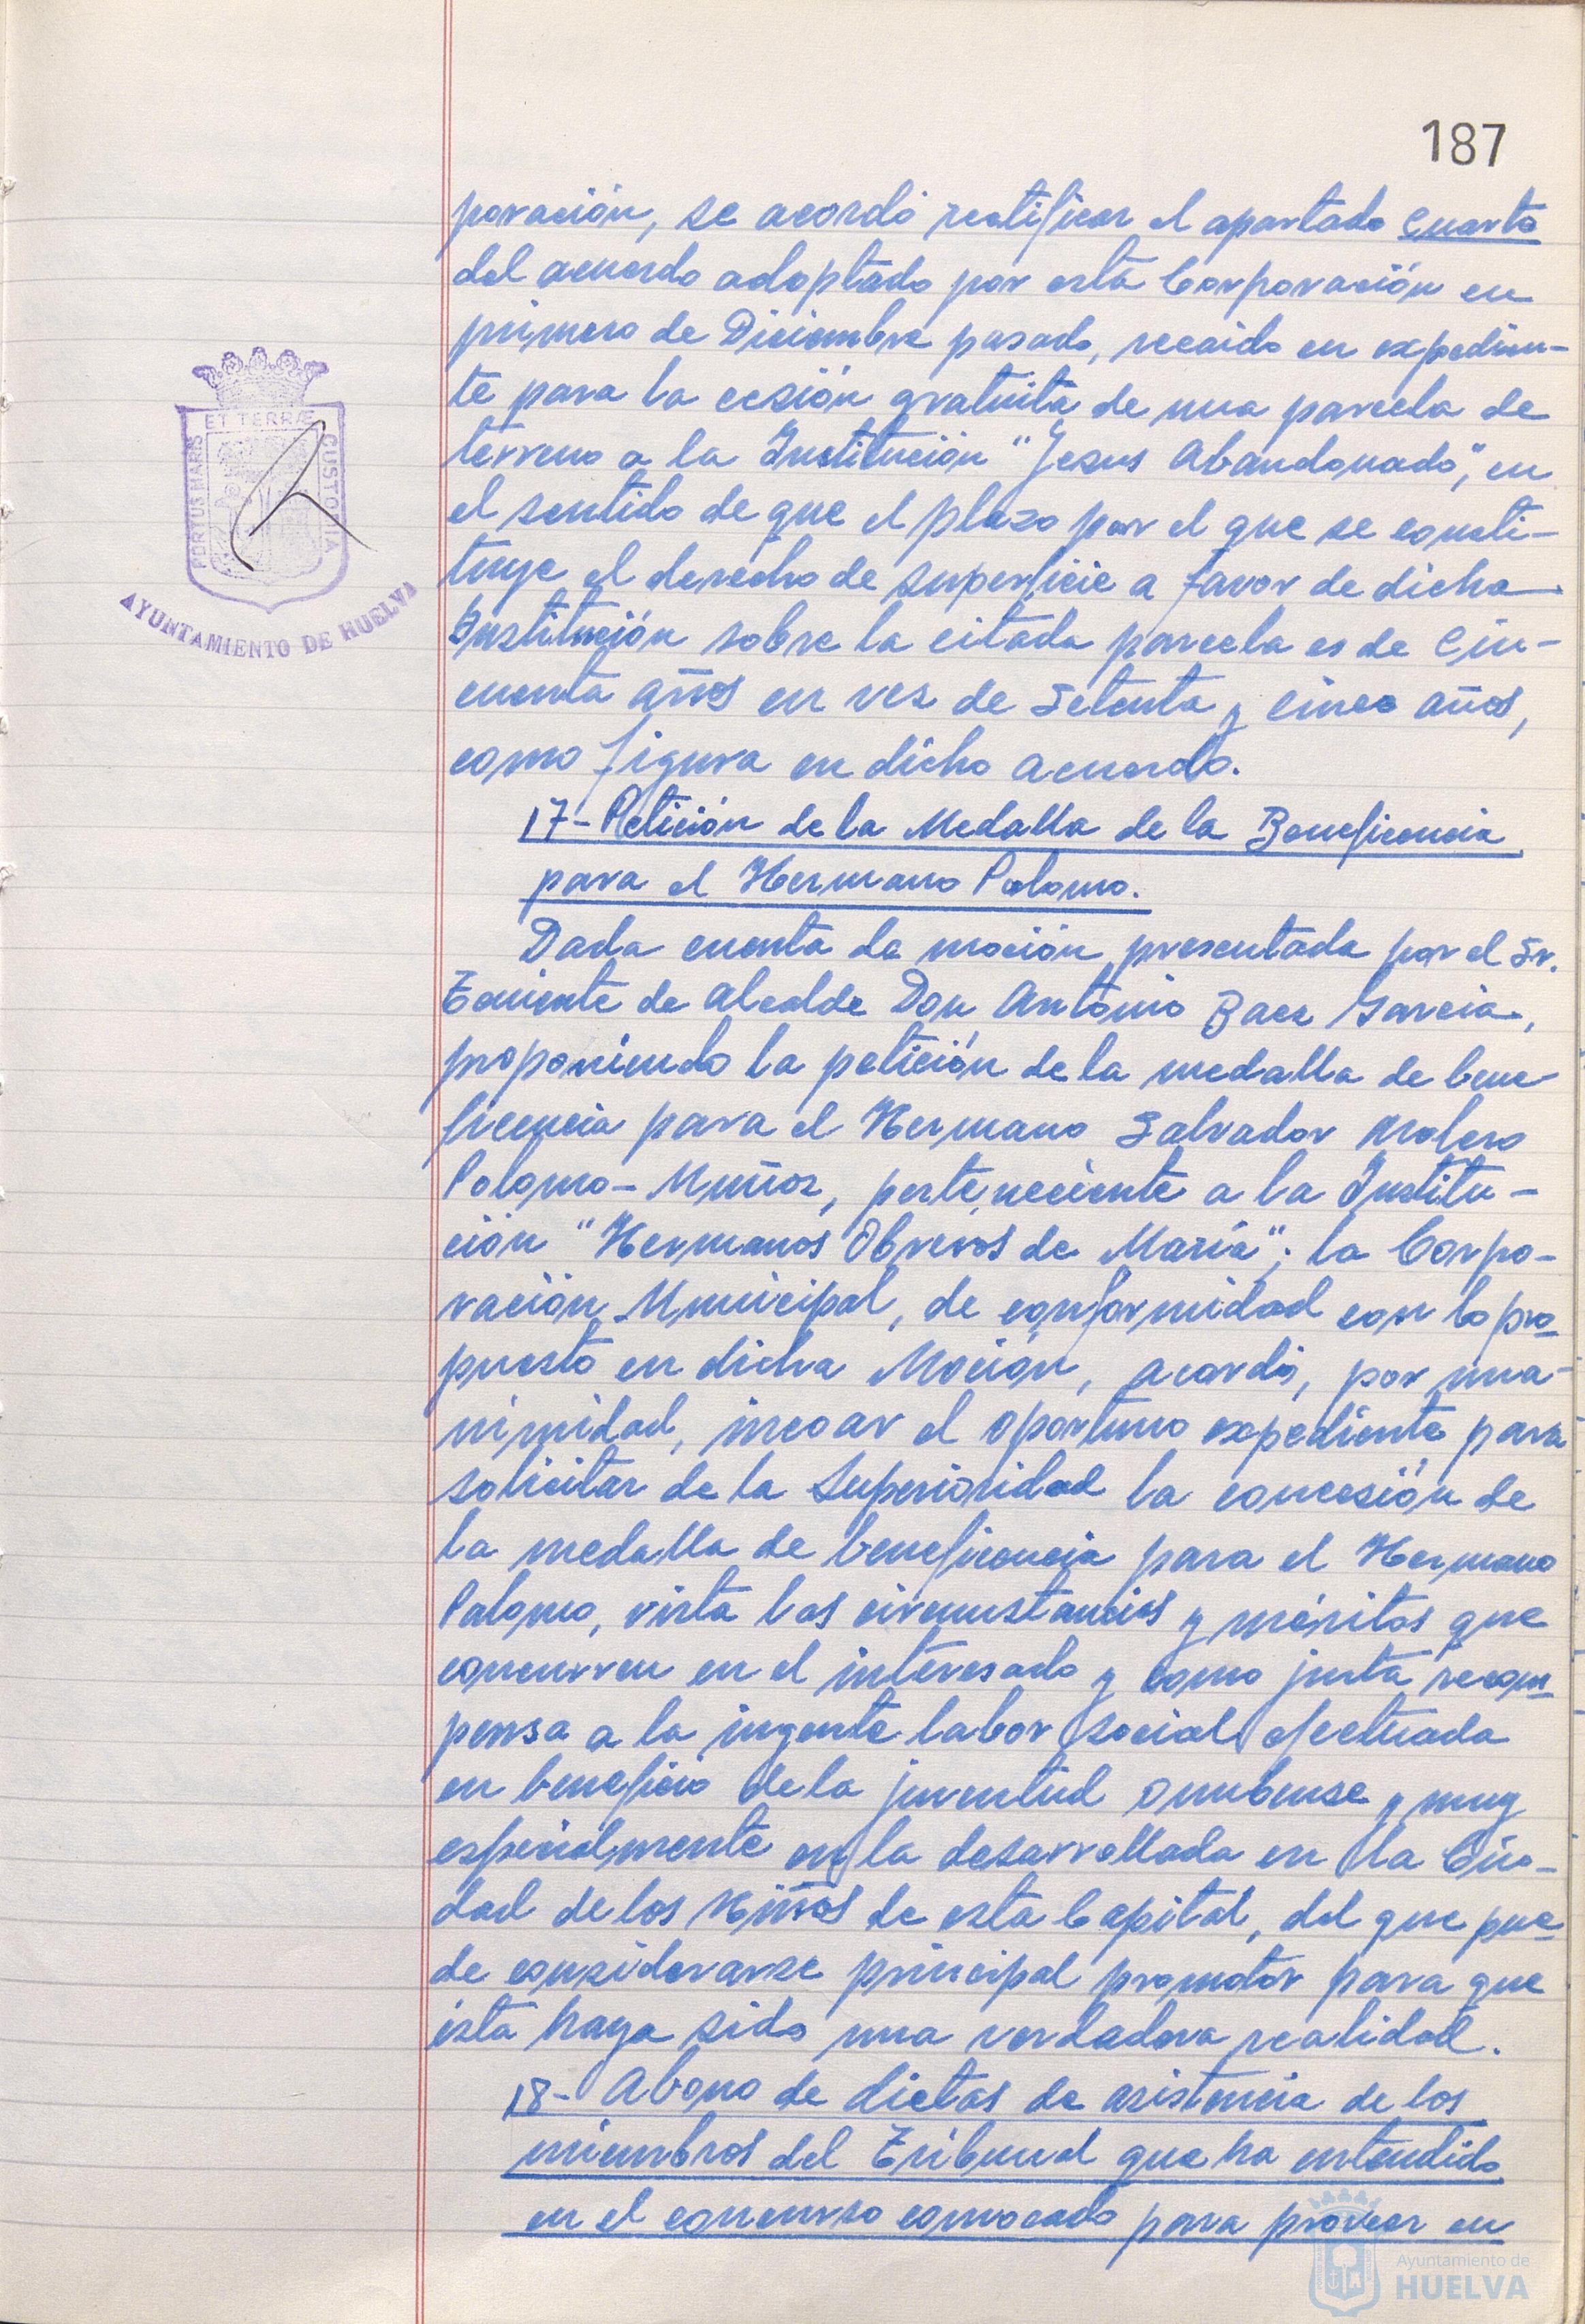 187
poración, se acordó rectificar el apartado Cuarto
del acuerdo adoptado por esta Corporación en
primero de Diciembre pasado, recaido en expedien-
te para la cesión gratuita de una parcela de
terreno a la Institución "Jesus Abandonado", en
el sentido de que el plazo por el que se consti-
tuye el derecho de superficie a favor de dicha
Institución sobre la citada parcela es de Cin-
cuenta años en vez de Setenta y cinco años,
como figura en dicho acuerdo.
17-Petición de la Medalla de la Beneficencia
para el Hermano Palomo.
Dada cuenta de moción presentada por el Sr.
Teniente de Alcalde Don Antonio Baez Garcia,
proponiendo la petición de la medalla de bene-
ficencia para el Hermano Salvador Molero
Palomo-Muñoz, perteneciente a la Institu-
ción "Hermanos Obreros de María"; la Corpo-
ración Municipal, de conformidad con lo pro-
puesto en dicha Moción, acordó, por una-
nimidad, incoar el oportuno expediente para
solicitar de la Superioridad la concesión de
la medalla de beneficencia para el Hermano
Palomo, vista las circunstancias y méritos que
concurren en el interesado y como justa recom-
pensa a la ingente labor social efectuada
en beneficio de la juventud onubense y muy
especialmente en la desarrollada en la Ciu-
dad de los Niños de esta Capital, del que pue-
de considerarse principal promotor para que
ésta haya sido una verdadera realidad.
18-Abono de dietas de asistencia de los
miembros del Tribunal que ha entendido
en el concurso convocado para proveer en
PORTUS MARIS
ET TERRÆ
CUSTODIA
AYUNTAMIENTO DE HUELVA
Ayuntamiento de
HUELVA